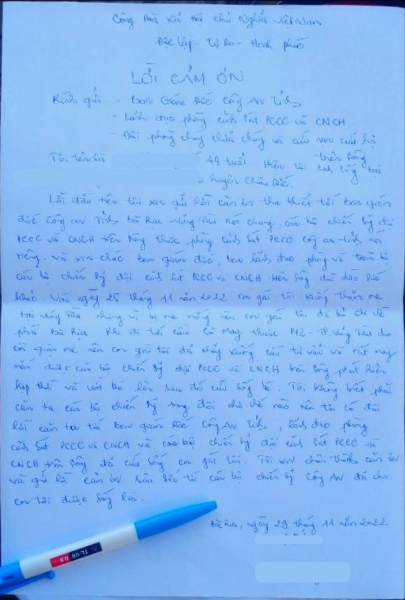 Cộng Hòa xã hội chủ Nghĩa Việt Nam
Độc lập - Tự Do - Hạnh phúc
LỜI CẢM ƠN
Kính gửi: - Ban Giám Đốc Công An Tỉnh
- Lãnh đạo phòng cảnh sát PCCC và CNCH
- Đội phòng cháy chữa cháy và cứu nạn cứu hộ
trên sông
Tôi tên là 48 tuổi Hiện tôi
huyện Châu Đức.
Lời đầu tiên tôi xin gửi lời cảm ơn tha thiết tới ban giám
đốc công an Tỉnh Bà Rịa - Vũng Tàu nói chung, cán bộ chiến sỹ đội
PCCC và CNCH trên sông thuộc phòng cảnh sát PCCC công an tỉnh nói
riêng, và xin chúc ban giám đốc, ban lãnh đạo phòng và toàn bộ
cán bộ chiến sỹ đội cảnh sát PCCC và CNCH trên sông dồi dào sức
khỏe. Vào ngày 25 tháng 11 năm 2022 con gái tôi xuống thăm mẹ
tại Vũng Tàu nhưng vì bị mẹ mắng nên con gái tôi đã bỏ đi về
phía Bà Rịa. Khi đi tới cầu Cỏ May thuộc P12 - TP Vũng Tàu do
còn giận mẹ nên con gái tôi đã nhảy xuống cầu tự vẫn và rất may
mắn được cán bộ chiến sỹ đội PCCC và CNCH trên sông phát hiện
kịp thời và vớt lên sau đó cứu sống. Tôi không biết phải
cảm tạ cán bộ chiến sỹ trong đội như thế nào nên tôi có đôi
lời cảm tạ tới ban giám đốc Công An Tỉnh, lãnh đạo phòng
cảnh sát PCCC và CNCH và cán bộ chiến sỹ đội cảnh sát PCCC và
CNCH trên sông đã cứu sống con gái tôi. Tôi xin chân thành cảm ơn
và gửi lời cảm ơn sâu sắc tới cán bộ chiến sỹ Công An đã cho
con tôi được sống lại.
Bà Rịa, ngày 29 tháng 11 năm 2022
TL 08 0.8